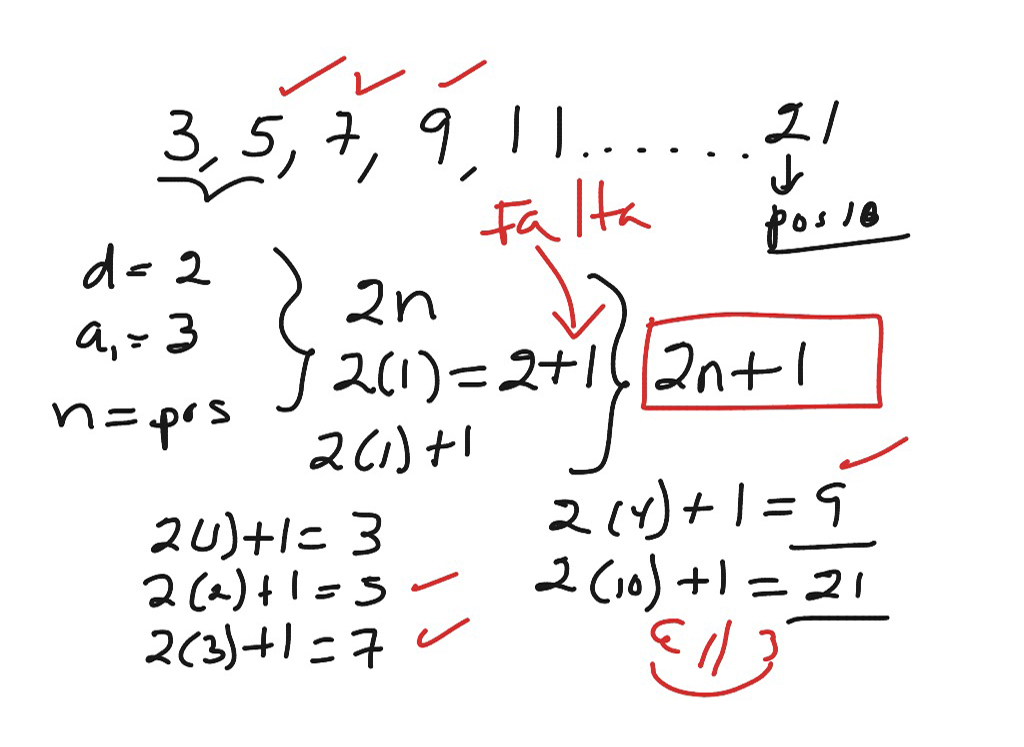 3, 5, 7, 9, 11....... 21
pos 10
Falta
d = 2
a₁ = 3
n = pos
2n
2(1) = 2+1
2(1)+1
2n+1
2(1)+1= 3
2(2)+1 = 5
2(3)+1 = 7
2(4)+1 = 9
2(10)+1 = 21